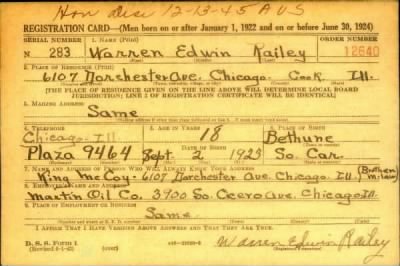 Hon Disc 12-13-45 AUS
REGISTRATION CARD—(Men born on or after January 1, 1922 and on or before June 30, 1924)
SERIAL NUMBER 1. NAME (Print) ORDER NUMBER
N 283 Warren Edwin Kailey 12640
(First) (Middle) (Last)
2. PLACE OF RESIDENCE (Print)
6107 Dorchester Ave. Chicago Cook Ill.
[THE PLACE OF RESIDENCE GIVEN ON THE LINE ABOVE WILL DETERMINE LOCAL BOARD
JURISDICTION; LINE 2 OF REGISTRATION CERTIFICATE WILL BE IDENTICAL]
3. MAILING ADDRESS
Same
4. TELEPHONE 5. AGE IN YEARS 6. PLACE OF BIRTH
Chicago-Ill. 18 Bethune
DATE OF BIRTH
Plaza 9464 Sept 2 1923 So. Car.
7. NAME AND ADDRESS OF PERSON WHO WILL ALWAYS KNOW YOUR ADDRESS
King McCoy-6107 Dorchester Ave. Chicago Ill. (Brother in law)
8. EMPLOYER'S NAME AND ADDRESS
Martin Oil Co. 3900 So. Cicero Ave. Chicago Ill.
9. PLACE OF EMPLOYMENT OR BUSINESS
Same
I AFFIRM THAT I HAVE VERIFIED ABOVE ANSWERS AND THAT THEY ARE TRUE.
D. S. S. Form 1
Warren Edwin Kailey